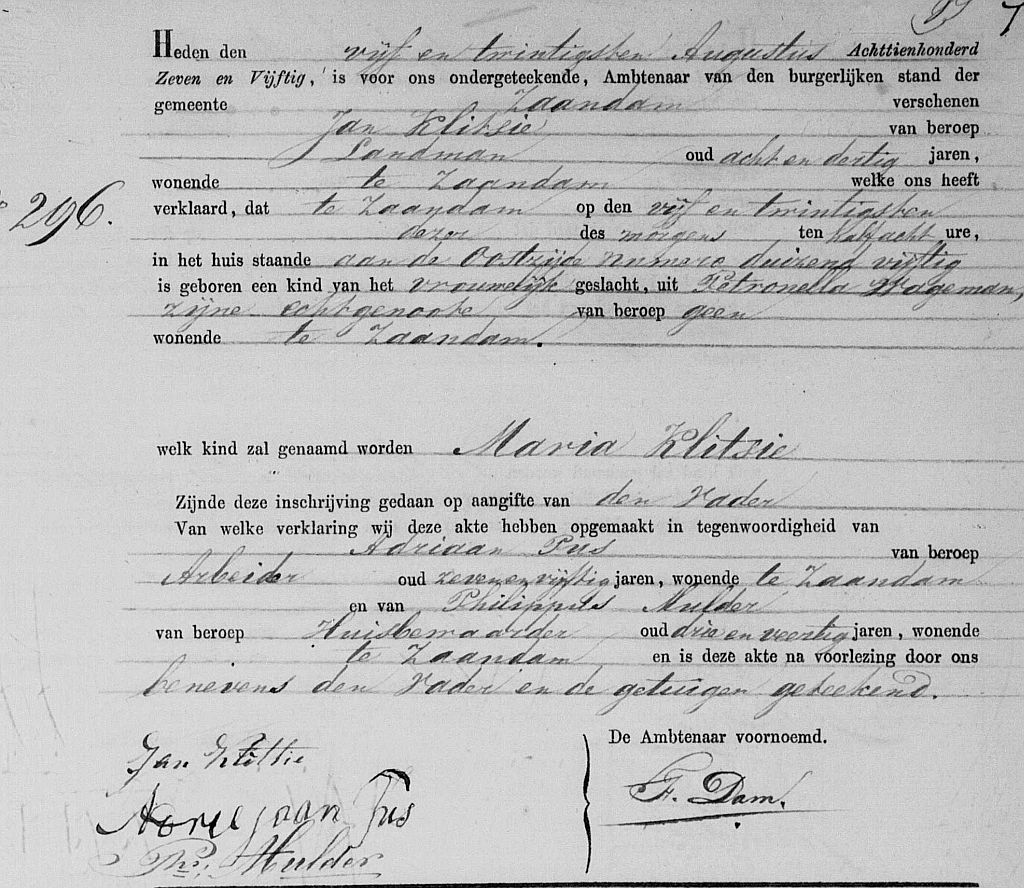 Heden den vijf en twintigsten Augustus Achttienhonderd
Zeven en Vijftig, is voor ons ondergeteekende, Ambtenaar van den burgerlijken stand der
gemeente Zaandam verschenen
Jan Klitsie van beroep
Landman oud acht en dertig jaren,
wonende te Zaandam welke ons heeft
296. verklaard, dat te Zaandam op den vijf en twintigsten
dezer des morgens ten half acht ure,
in het huis staande aan de Oostzijde numero duizend vijftig
is geboren een kind van het vrouwelijk geslacht, uit Petronella Wageman,
zijne echtgenoote van beroep geen
wonende te Zaandam.
welk kind zal genaamd worden Maria Klitsie
Zijnde deze inschrijving gedaan op aangifte van den Vader
Van welke verklaring wij deze akte hebben opgemaakt in tegenwoordigheid van
Adriaan Pus van beroep
Arbeider oud zeven en vijftig jaren, wonende te Zaandam
en van Philippus Mulder
van beroep Huisbewaarder oud drie en veertig jaren, wonende
te Zaandam en is deze akte na voorlezing door ons
benevens den Vader en de getuigen geteekend.
De Ambtenaar voornoemd.
Jan Klitsie
F. Dam.
Pus
Phs. Mulder